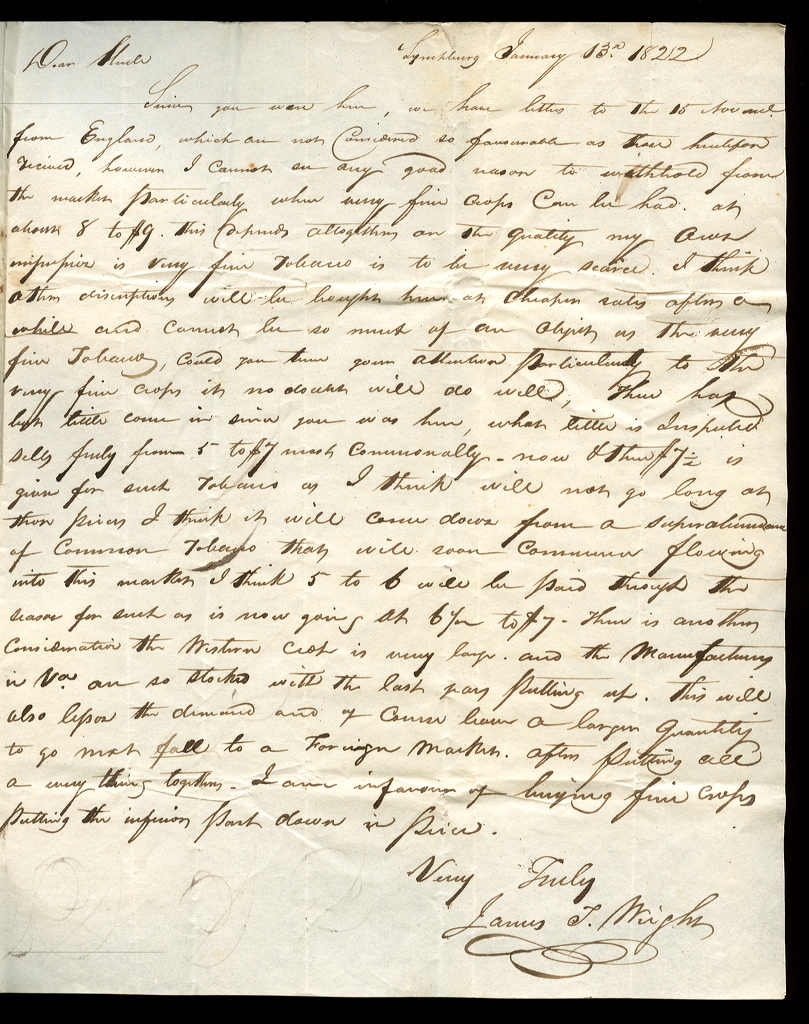 Dear Uncle Lynchburg January 13th 1822
Since you were here, we have letters to the 15 Novem.
from England, which are not Considered so favourable as those heretofore
recieved, however I cannot see any good reason to withhold from
the market Particularly when very fine crops Can be had. at
about 8 to $9. this Depends altogether on the Quality my Own
impression is very fine Tobacco is to be very scarce. I think
other discriptions will be bought here at cheaper rates after a
while and cannot be so much of an Object as the very
fine Tobacco, could you turn your attention Particularly to the
very fine crops it no doubt will do well, There has
but little come in since you was here, what little is Inspected
sells freely from 5 to $7 most Commonally - now & then $7½ is
given for such Tobacco as I think will not go long at
those prices I think it will come down from a superabundance
of Common Tobacco that will soon Commence flowing
into this market I think 5 to 6 will be Paid through the
season for such as is now going at 6½ to $7 - there is another
Consideration the Western Crop is very large. and the Manufacturers
in Va are so stocked with the last years Putting up. this will
also lessen the demand and of Course leave a larger Quantity
to go most fall to a Foreign Market. after Putting all
a every thing together - I am infavour of buying fine Crops
Putting the inferior Part down in Price.
Very Truly
James T. Wright